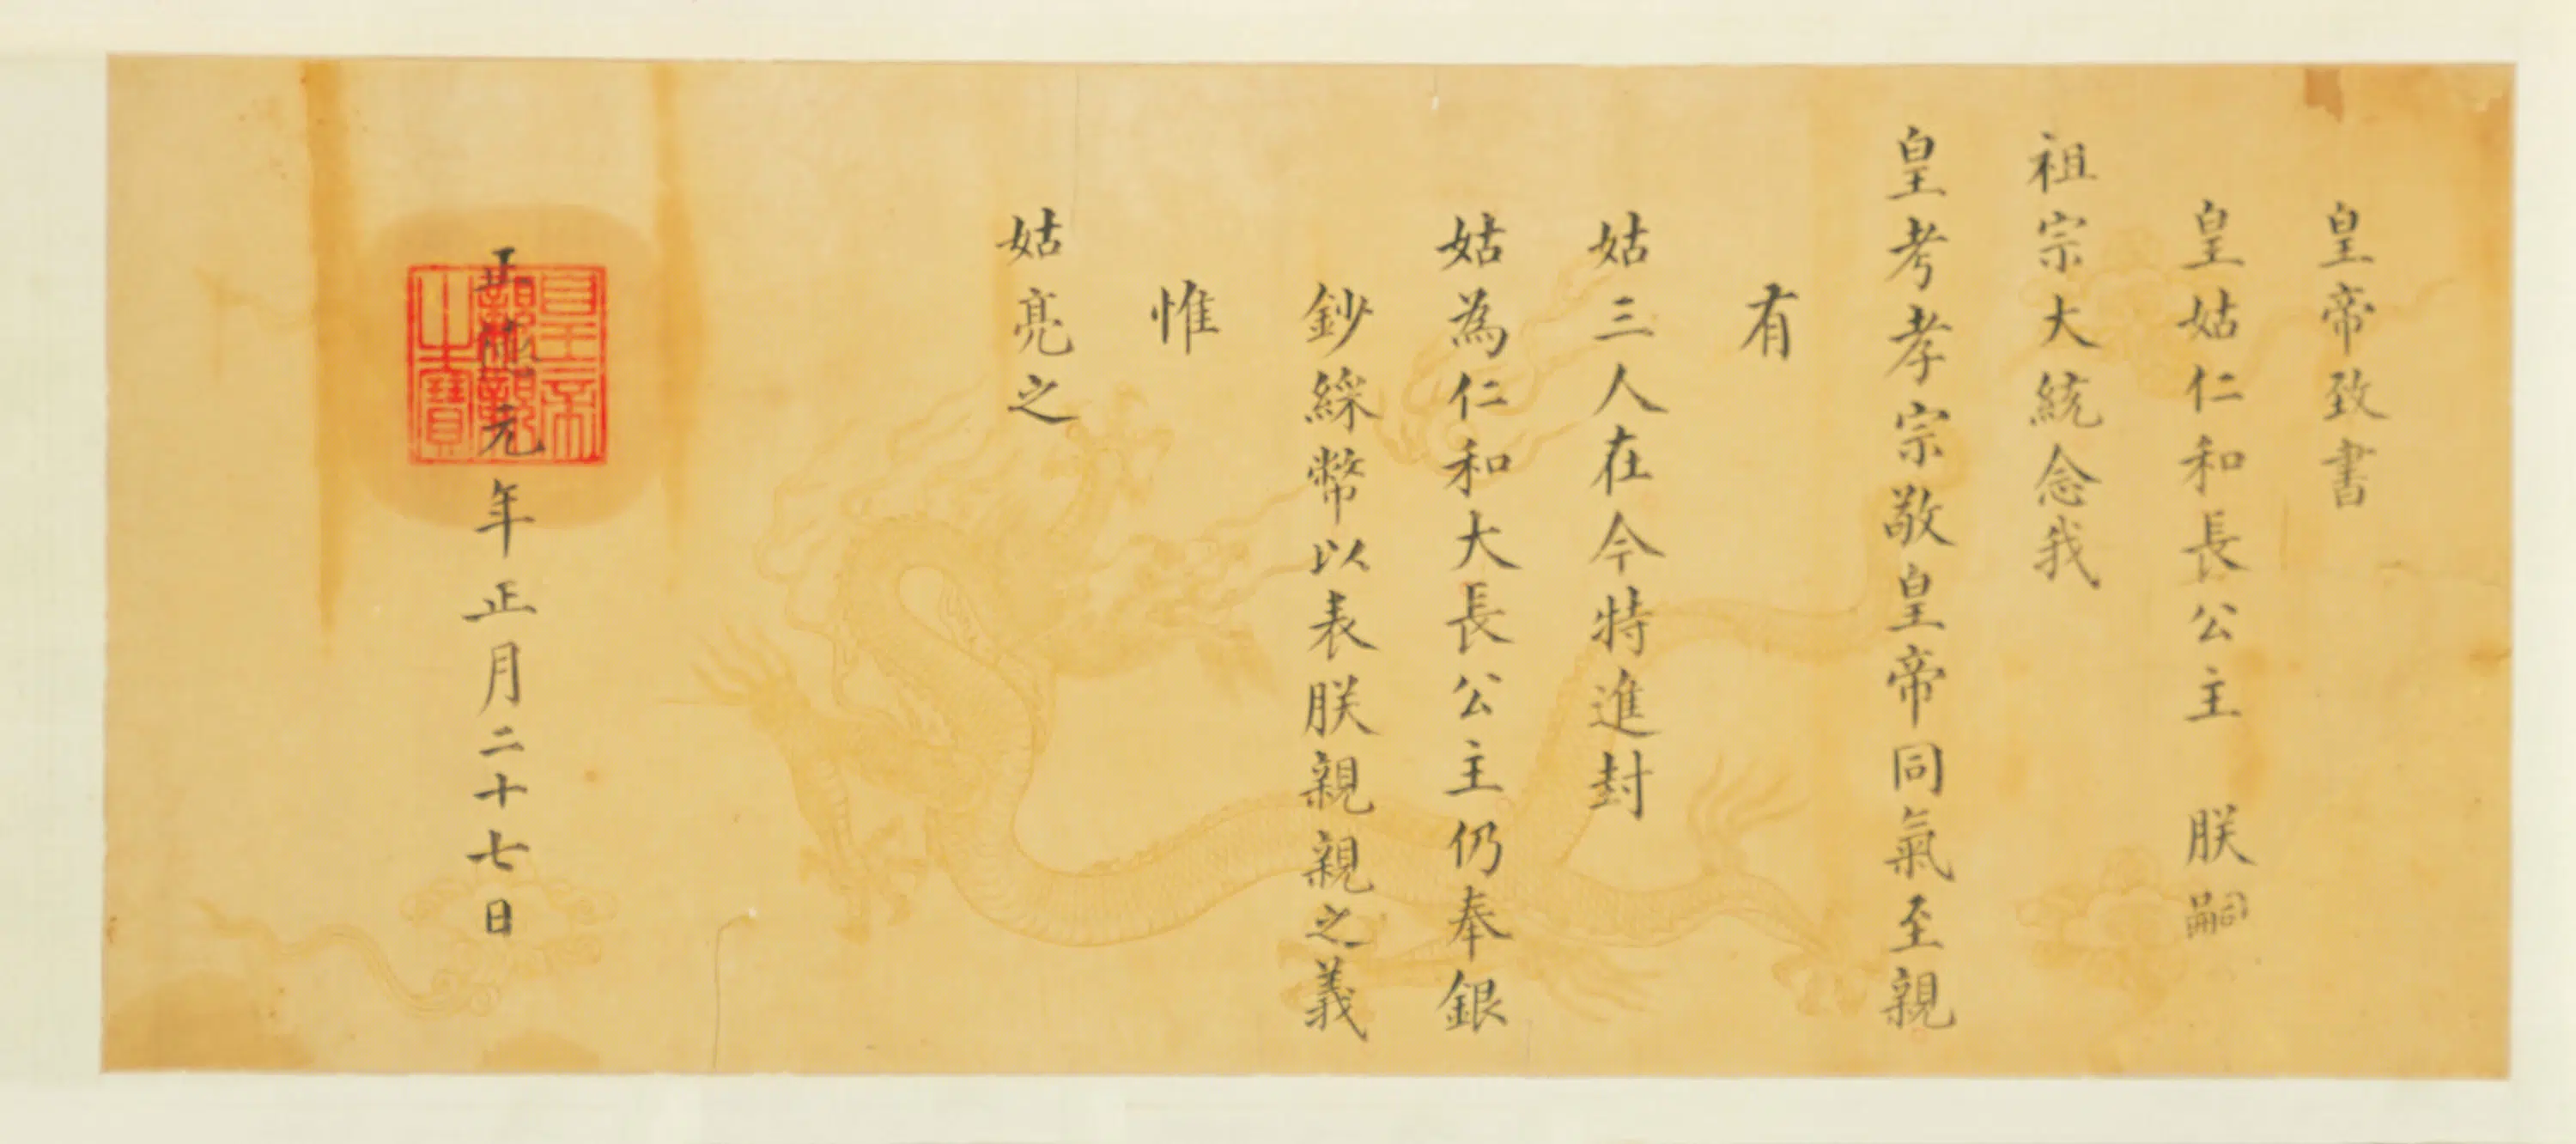 皇帝致書
皇姑仁和長公主　朕嗣
祖宗大統念我
皇考孝宗敬皇帝同氣至親
有
姑三人在今特進封
姑為仁和大長公主仍奉銀
鈔綵幣以表朕親親之義
惟
姑亮之
正德元年正月二十七日
皇帝親親之寶